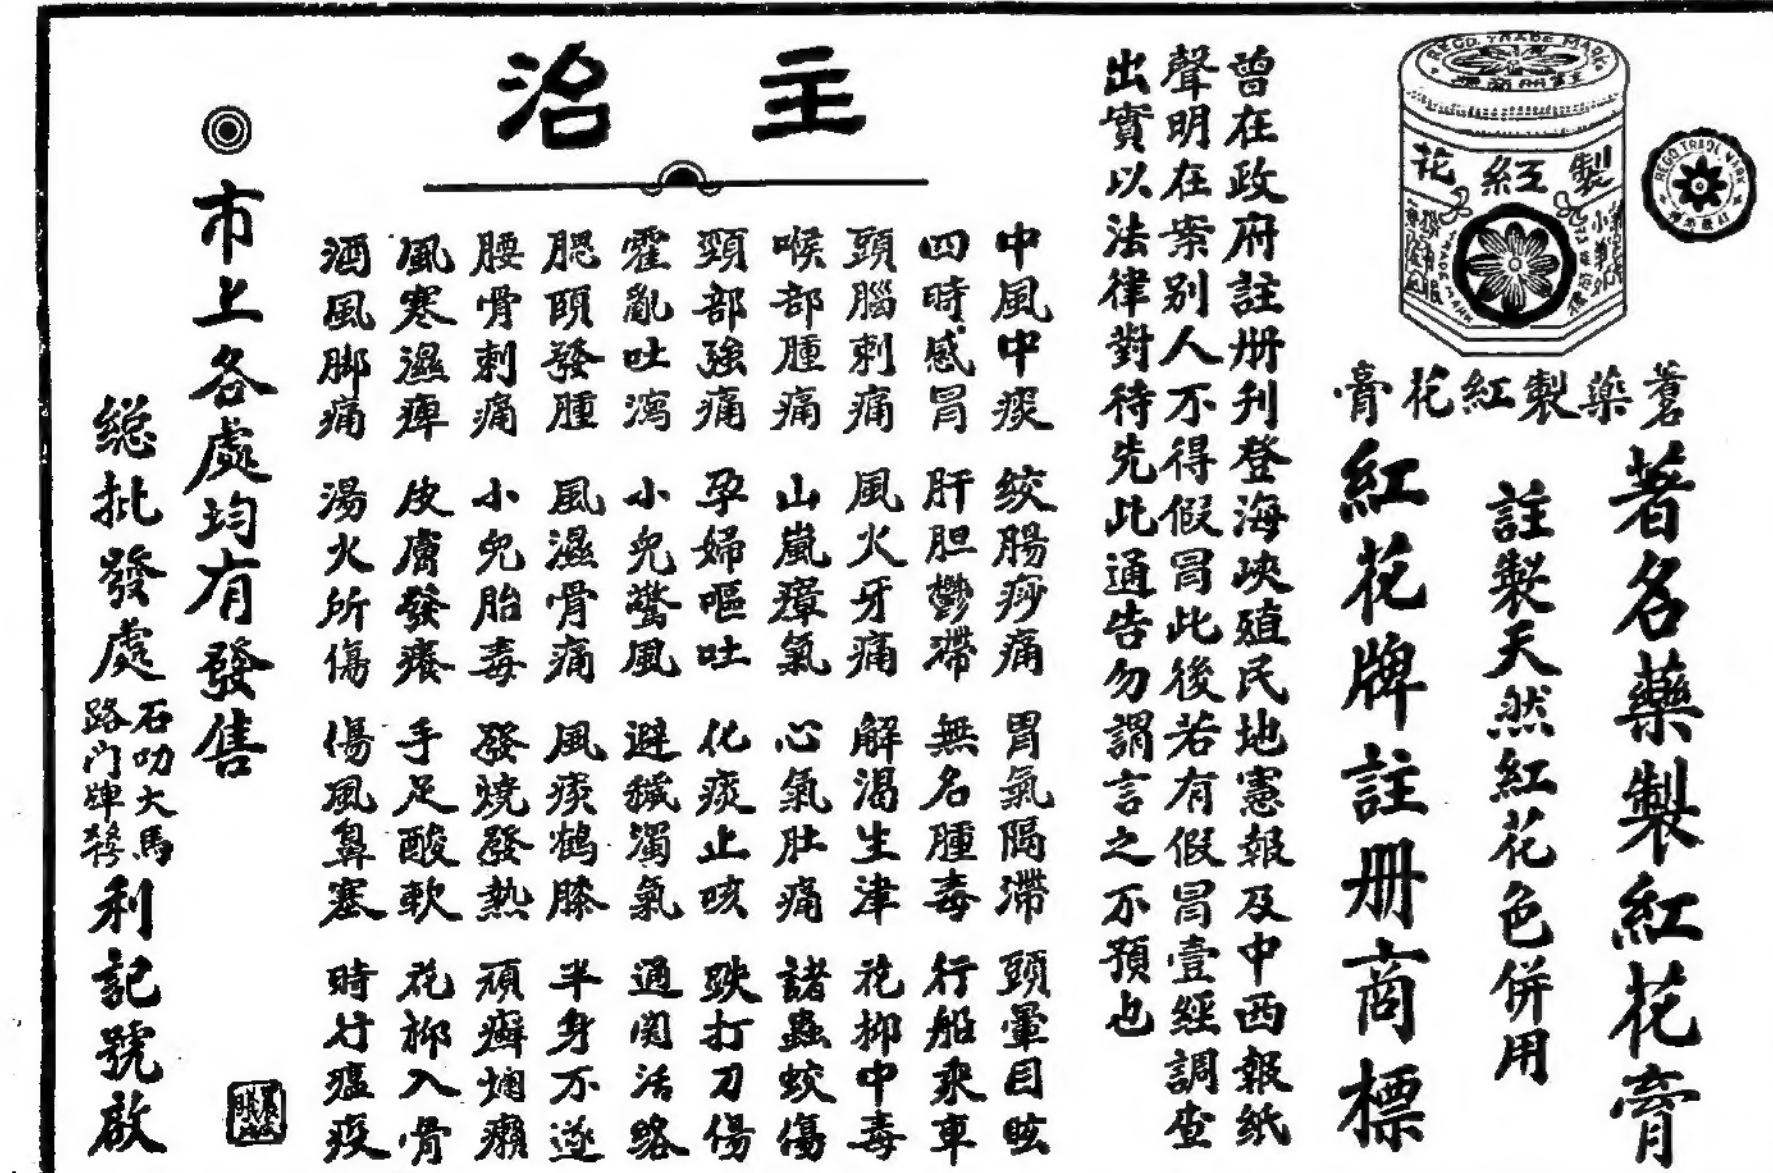 REGD. TRADE MARK
製紅花
REGD TRADE MARK
蒼藥製紅花膏
著名藥製紅花膏
註製天然紅花色併用
紅花牌註册商標
曾在政府註册刊登海峽殖民地憲報及中西報紙
聲明在案別人不得假冒此後若有假冒壹經調查
出實以法律對待先此通告勿謂言之不預也
主治
中風中痰 絞腸痧痛 胃氣隔滯 頭暈目眩
四時感冒 肝胆鬱滯 無名腫毒 行船乘車
頭腦刺痛 風火牙痛 解渴生津 花柳中毒
喉部腫痛 山嵐瘴氣 心氣肚痛 諸蟲蛟傷
頸部強痛 孕婦嘔吐 化痰止咳 跌打刀傷
霍亂吐瀉 小兒驚風 避穢濁氣 通関活絡
腮頤發腫 風濕骨痛 風痰鶴膝 半身不遂
腰骨刺痛 小兒胎毒 發燒發熱 頑癬爛癩
風寒濕痺 皮膚發癢 手足酸軟 花柳入骨
酒風脚痛 湯火所傷 傷風鼻塞 時行瘟疫
市上各處均有發售
総批發處 石叻大馬路门牌 利記號啟